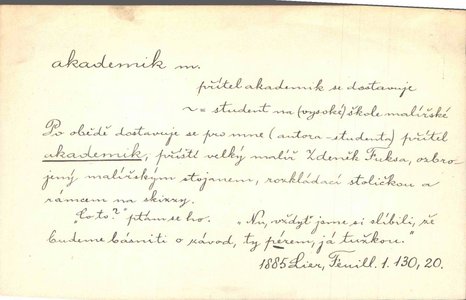 akademik m.
přítel akademik se dostavuje
~ = student na (vysoké) škole malířské
Po obědě dostavuje se pro mne (autora-studenta) přítel
akademik, příští velký malíř Zdeněk Fuksa, ozbro-
jený malířským stojanem, rozkládací stoličkou a
rámcem na skizzy.
"Co to?" ptám se ho. "Nu, vždyť jsme si slíbili, že
budeme básniti o závod, ty pérem, já tužkou."
1885 Lier, Feuill. 1. 130, 20.